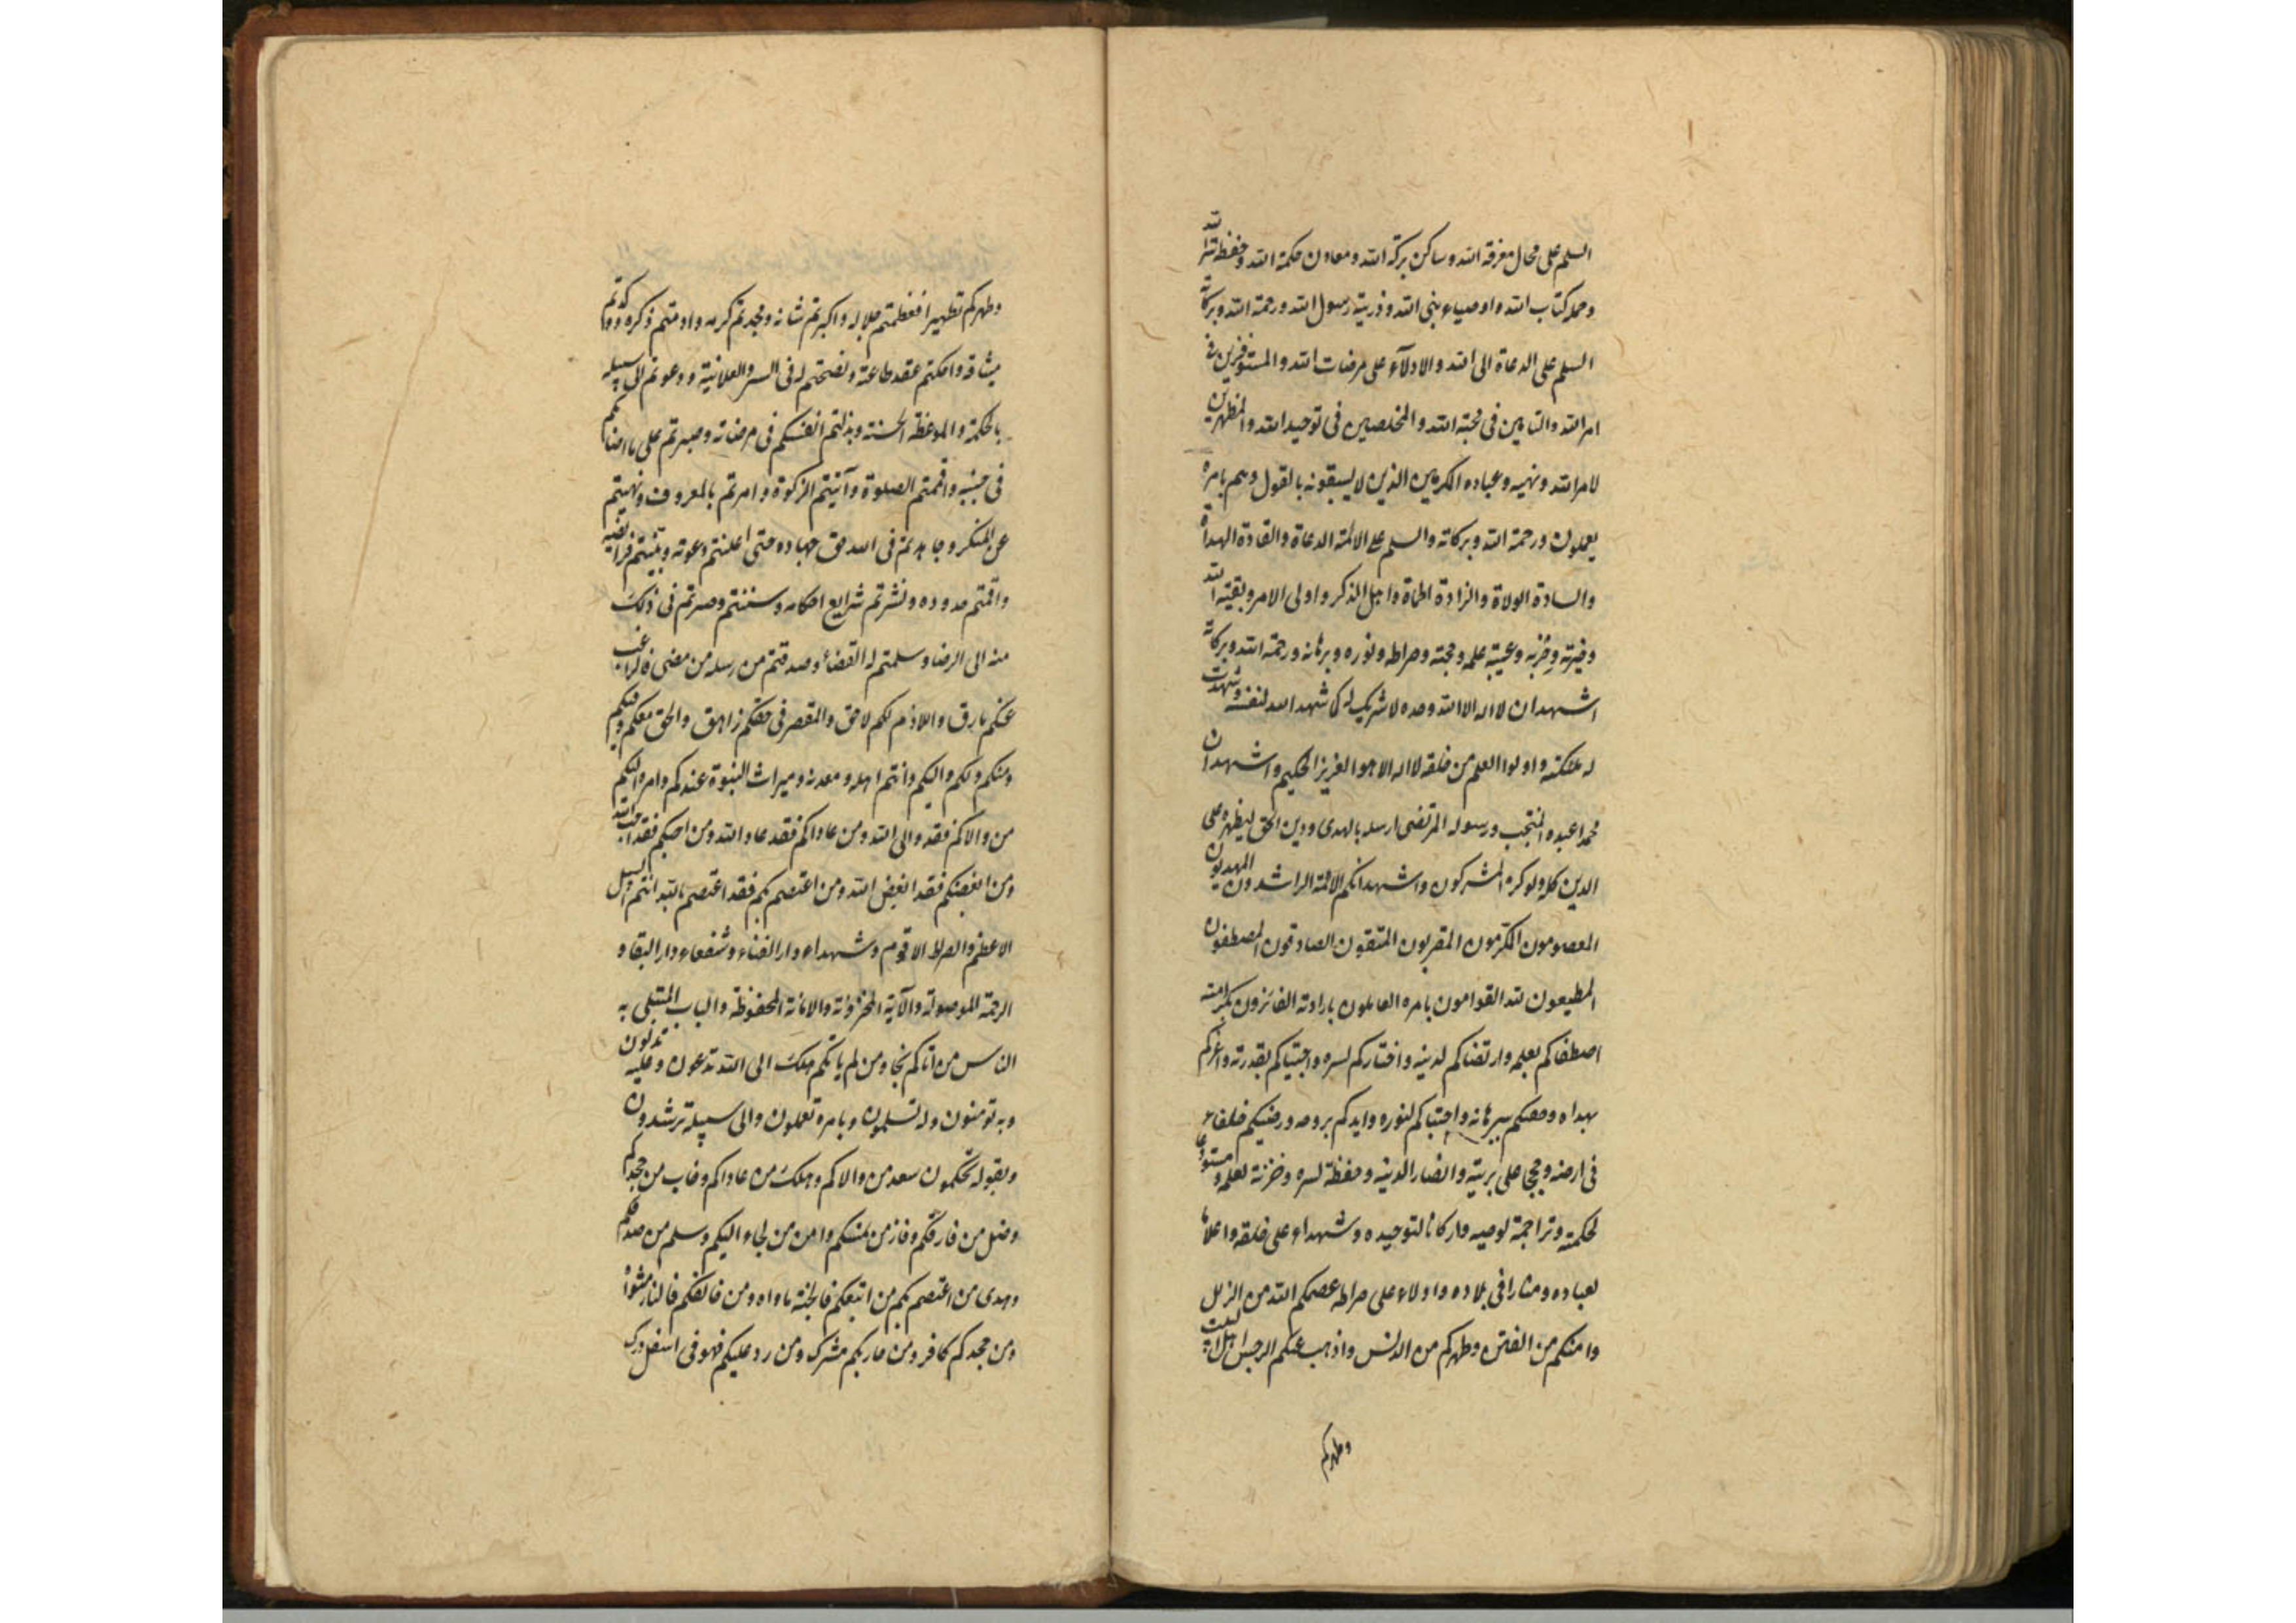 السلم على محال معرفة الله وساكن بركة الله ومعادن حكمة الله وحفظة سر الله
وحملة كتاب الله واوصياء نبى الله وذرية رسول الله ورحمة الله وبركاته
السلم على الدعاة الى الله والادلاء على مرضات الله والمستوفزين فى
امر الله والتامين فى محبة الله والمخلصين فى توحيد الله والمظهرين
لامر الله ونهيه وعباده المكرمين الذين لا يسبقونه بالقول وهم بامره
يعملون ورحمة الله وبركاته والسلم على الائمة الدعاة والقادة الهداة
والسادة الولاة والزادة الحماة واهل الذكر واولى الامر وبقية الله
وخيرته وحزبه وعيبة علمه وحجته وصراطه ونوره وبرهانه ورحمة الله وبركاته
اشهد ان لا اله الا الله وحده لا شريك له كما شهد الله لنفسه وشهدت
له ملئكته واولوا العلم من خلقه لا اله الا هو العزيز الحكيم واشهد ان
محمدا عبده المنتجب ورسوله المرتضى ارسله بالهدى ودين الحق ليظهره على
الدين كله ولو كره المشركون واشهد انكم الائمة الراشدون المهديون
المعصومون المكرمون المقربون المتقون الصادقون المصطفون
المطيعون لله القوامون بامره العاملون بارادته الفائزون بكرامته
اصطفاكم بعلمه وارتضاكم لدينه واختاركم لسره واجتباكم بقدرته واعزكم
بهداه وخصكم ببرهانه واجتباكم لنوره وايدكم بروحه ورضيكم خلفاء
فى ارضه وحججا على بريته وانصار الدينه وحفظة لسره وخزنة لعلمه ومستودعا
لحكمته وتراجمة لوحيه واركانا لتوحيده وشهداء على خلقه واعلاما
لعباده ومنارا فى بلاده وادلاء على صراطه عصمكم الله من الزلل
وامنكم من الفتن وطهركم من الدنس واذهب عنكم الرجس اهل البيت
وطهركم
وطهركم تطهيرا فعظمتم جلاله واكبرتم شانه ومجدتم كرمه وادمتم ذكره ووكدتم
ميثاقه واحكمتم عقد طاعته ونصحتم له فى السر والعلانية ودعوتم الى سبيله
بالحكمة والموعظة الحسنة وبذلتم انفسكم فى مرضاته وصبرتم على ما اصابكم
فى جنبه واقمتم الصلوة وآتيتم الزكوة وامرتم بالمعروف ونهيتم
عن المنكر وجاهدتم فى الله حق جهاده حتى اعلنتم دعوته وبينتم فرائضه
واقمتم حدوده ونشرتم شرايع احكامه وسننتم وصرتم فى ذلك
منه الى الرضا وسلمتم له القضاء وصدقتم من رسله من مضى فالراغب
عنكم مارق واللازم لكم لاحق والمقصر فى حقكم زاهق والحق معكم وفيكم
ومنكم ولكم واليكم وانتم اهله ومعدنه وميراث النبوة عندكم وامره اليكم
من والاكم فقد والى الله ومن عاداكم فقد عاد الله ومن احبكم فقد احب الله
ومن ابغضكم فقد ابغض الله ومن اعتصم بكم فقد اعتصم بالله انتم السبيل
الاعظم والصراط الاقوم وشهداء دار الفناء وشفعاء دار البقاء و
الرحمة الموصولة والآية المخزونة والامانة المحفوظة والباب المبتلى به
الناس من اتاكم نجا ومن لم ياتكم هلك الى الله تدعون وعليه تدلون
وبه تومنون وله تسلمون وبامره تعملون والى سبيله ترشدون
وبقوله تحكمون سعد من والاكم وهلك من عاداكم وخاب من جحدكم
وضل من فارقكم وفاز من تمسك بكم وامن من لجاء اليكم وسلم من صدقكم
وهدى من اعتصم بكم من اتبعكم فالجنة ماواه ومن خالفكم فالنار مثواه
ومن جحدكم كافر ومن حاربكم مشرك ومن رد عليكم فهو فى اسفل درك